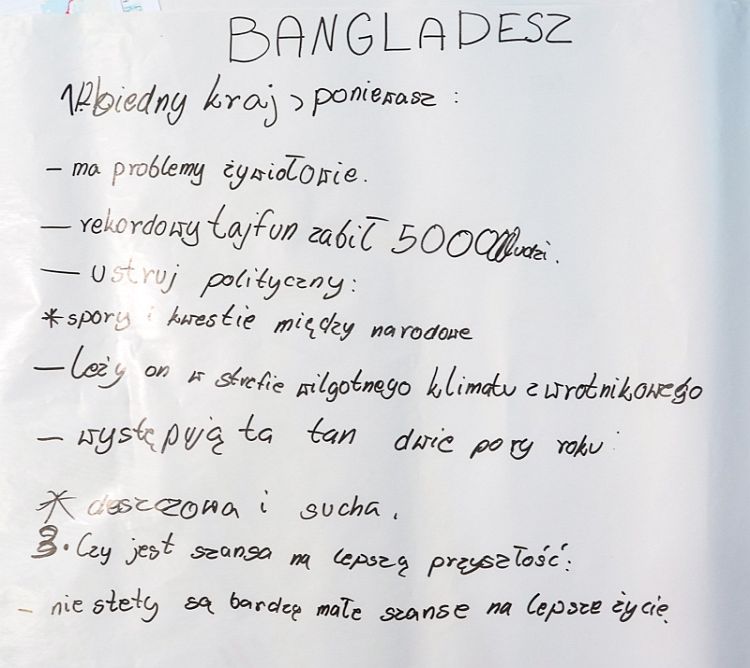 BANGLADESZ
1. biedny kraj, ponieważ :
- ma problemy żywiołowie.
- rekordowy tajfun zabił 5000 ludzi.
- ustruj polityczny:
* spory i kwestie między narodowe
- leży on w strefie wilgotnego klimatu zwrotnikowego
- występują ta tan dwie pory roku:
* deszczowa i sucha.
3. Czy jest szansa na lepszą przyszłość:
- nie stety są bardzę małe szanse na lepsze życie.